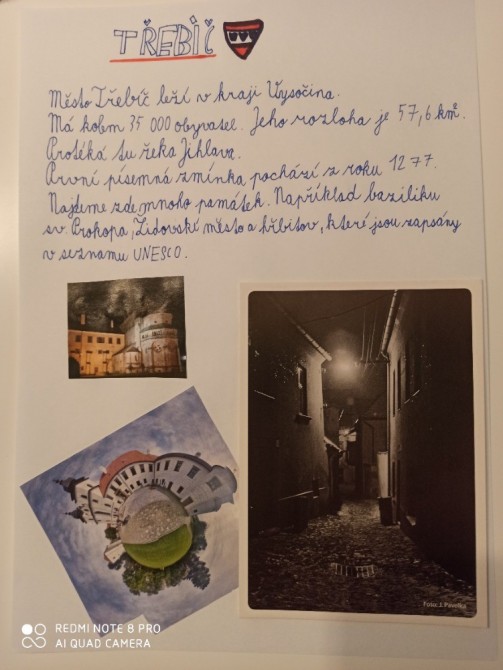 TŘEBÍČ
Město Třebíč leží v kraji Vysočina.
Má kolem 35 000 obyvatel. Jeho rozloha je 57,6 km².
Protéká tu řeka Jihlava.
První písemná zmínka pochází z roku 1277.
Najdeme zde mnoho památek. Například baziliku
sv. Prokopa, Židovské město a hřbitov, které jsou zapsány
v seznamu UNESCO.
Foto: J. Pavelka
REDMI NOTE 8 PRO
AI QUAD CAMERA